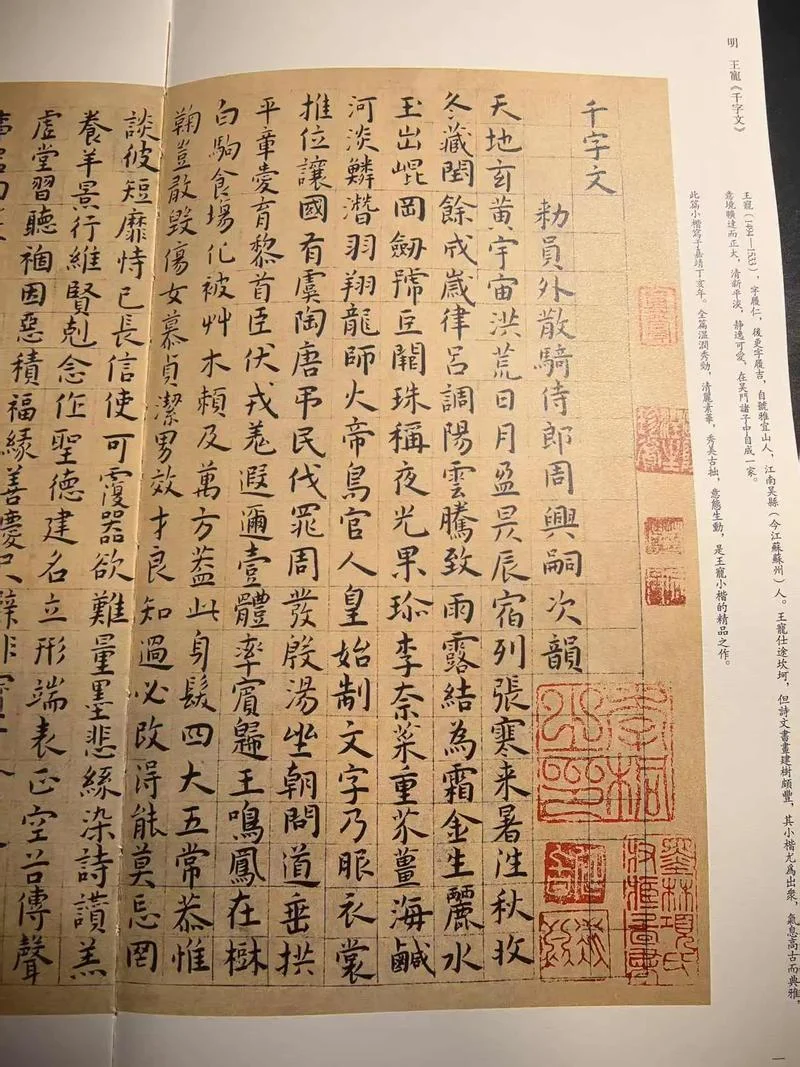 明 王寵《千字文》
王寵（1494—1533），字履仁，後更字履吉，自號雅宜山人，江南吳縣（今江蘇蘇州）人。王寵仕途坎坷，但詩文書畫建樹頗豐，其小楷尤爲出衆，氣息高古而典雅，
意境曠達而正大，清新平淡，靜逸可愛，在吳門諸子中自成一家。
此篇小楷寫于嘉靖丁亥年。全篇溫潤秀勁，清麗素華，秀美古拙，意態生動，是王寵小楷的精品之作。
千字文
勑員外散騎侍郎周興嗣次韻
天地玄黃宇宙洪荒日月盈昃辰宿列張寒来暑往秋收
冬藏閏餘成歲律呂調陽雲騰致雨露結為霜金生麗水
玉出崐岡劔號巨闕珠稱夜光果珎李柰菜重芥薑海鹹
河淡鱗潛羽翔龍師火帝鳥官人皇始制文字乃服衣裳
推位讓國有虞陶唐弔民伐罪周發殷湯坐朝問道垂拱
平章愛育黎首臣伏戎羌遐邇壹體率賓歸王鳴鳳在樹
白駒食場化被艸木賴及萬方盖此身髮四大五常恭惟
鞠豈敢毀傷女慕貞潔男效才良知過必改得能莫忘罔
談彼短靡恃己長信使可覆器欲難量墨悲絲染詩讚羔
養羊景行維賢剋念作聖德建名立形端表正空谷傳聲
虛堂習聽禍因惡積福緣善慶尺璧非寶
一